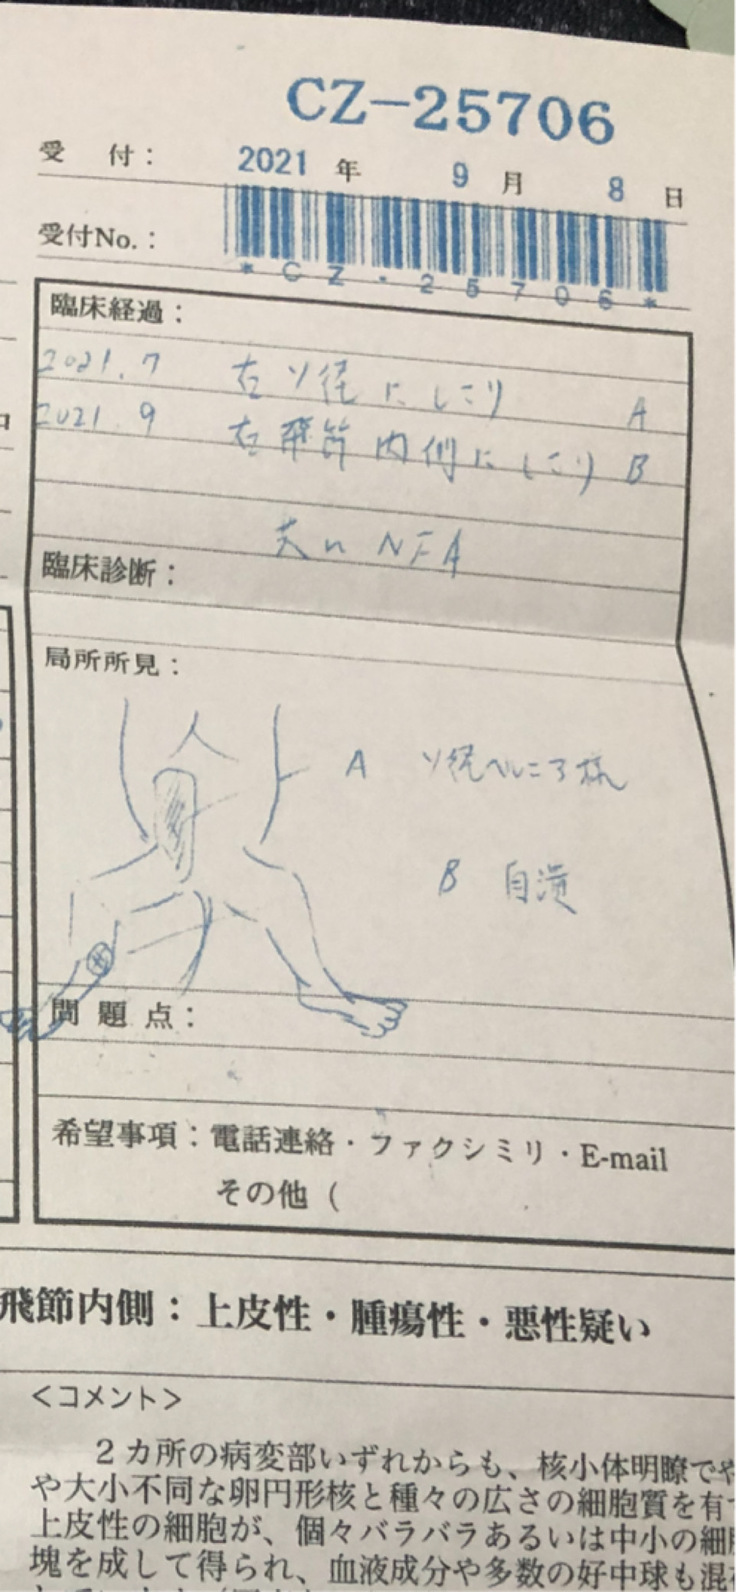 CZ-25706
受 付： 2021 年 9 月 8 日
受付No.：
*CZ-25706*
臨床経過：
2021.7 左ソ径にしこり A
2021.9 左飛節内側にしこり B
共に NFA
臨床診断：
局所所見：
A ソ径ヘルニア様
B 自潰
問 題 点：
希望事項：電話連絡・ファクシミリ・E-mail
その他（
飛節内側：上皮性・腫瘍性・悪性疑い
＜コメント＞
２カ所の病変部いずれからも、核小体明瞭でや
や大小不同な卵円形核と種々の広さの細胞質を有
上皮性の細胞が、個々バラバラあるいは中小の細
塊を成して得られ、血液成分や多数の好中球も混